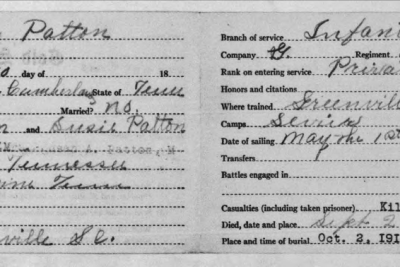 Patton
day of 18
Cumberland State of Tenn
Married? no.
and Susie Patton
Patton, M
Tennessee
Tenn
ville S.C.
Branch of service Infan
Company G. Regiment
Rank on entering service Priva
Honors and citations
Where trained Greenvill
Camps Sevier
Date of sailing May the 1st
Transfers
Battles engaged in
Casualties (including taken prisoner). Kil
Died, date and place Sept 2
Place and time of burial Oct. 2, 191